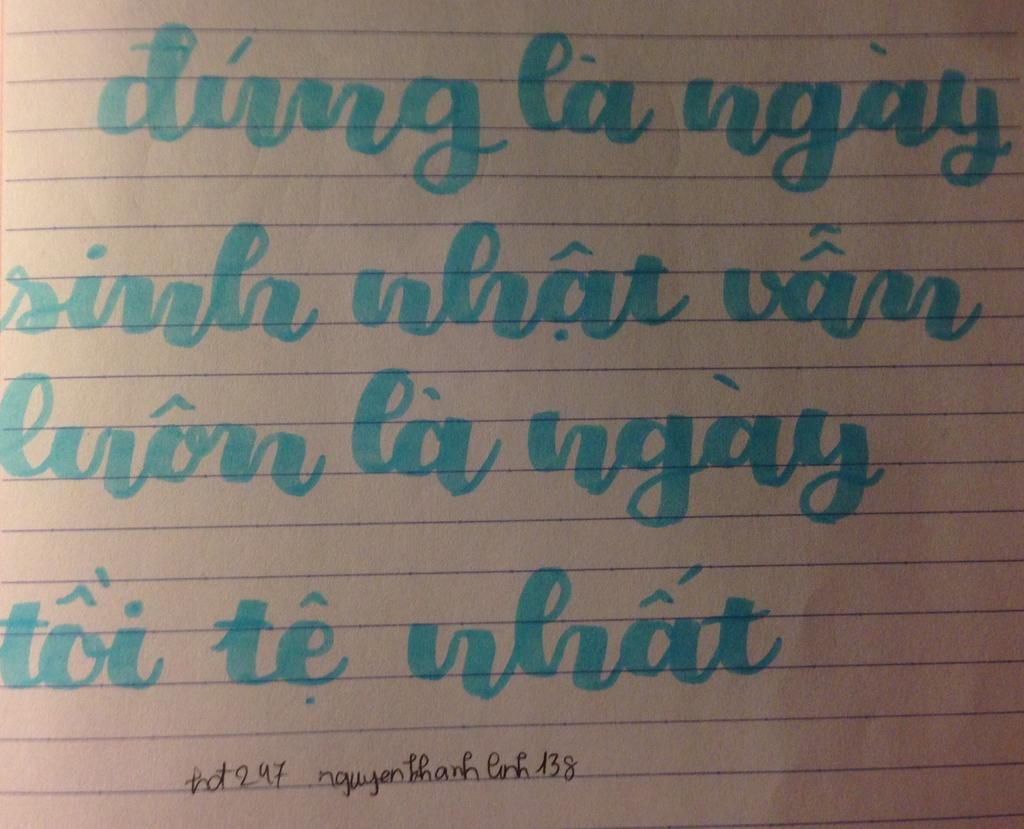 đúng là ngày
sinh nhật vẫn
luôn là ngày
tồi tệ nhất
nguyenkhanhlinh138